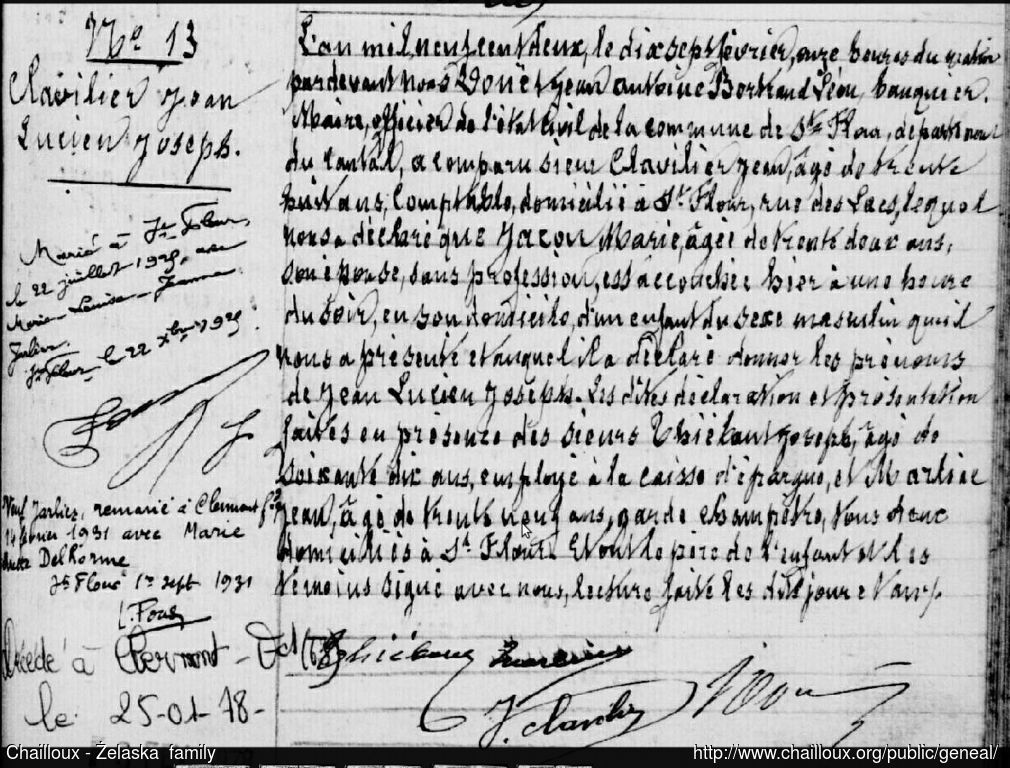 No 13
Clavilier Jean
Lucien Joseph.
Marié à St Flour,
le 22 juillet 1929, avec
Marie Louise Jeanne
St Flour le 22 Xbre 1929.
Veuf Jarlier, remarié à Clermont Fd
14 février 1931 avec Marie
Delhorme
St Flour 1er sept 1931
Décédé à Clermont-Fd (63)
le 25-01-78-
L'an mil neuf cent deux, le dix sept février, onze heures du matin
pardevant nous Jean Antoine Bertrand Léon, banquier.
Maire, officier de l'état civil de la commune de St Flour, département
du Cantal, a comparu sieur Clavilier Jean, âgé de trente
huit ans, Comptable, domicilié à St Flour, rue des Lacs, lequel
nous a déclaré que Jacon Marie, âgée de trente deux ans,
son épouse, sans profession, est accouchée hier à une heure
du soir, en son domicile, d'un enfant du sexe masculin qu'il
nous a présenté et auquel il a déclaré donner les prénoms
de Jean Lucien Joseph. Les dites déclaration et présentation
faites en présence des sieurs Joseph, âgé de
soixante dix ans, employé à la caisse d'épargne, et
Jean, âgé de trente neuf ans, garde champêtre, tous deux
domiciliés à St Flour. Et ont le père de l'enfant et les
témoins signé avec nous, lecture faite les dits jour et an
J. Clavilier
Chailloux - Żelaska family
http://www.chailloux.org/public/geneal/